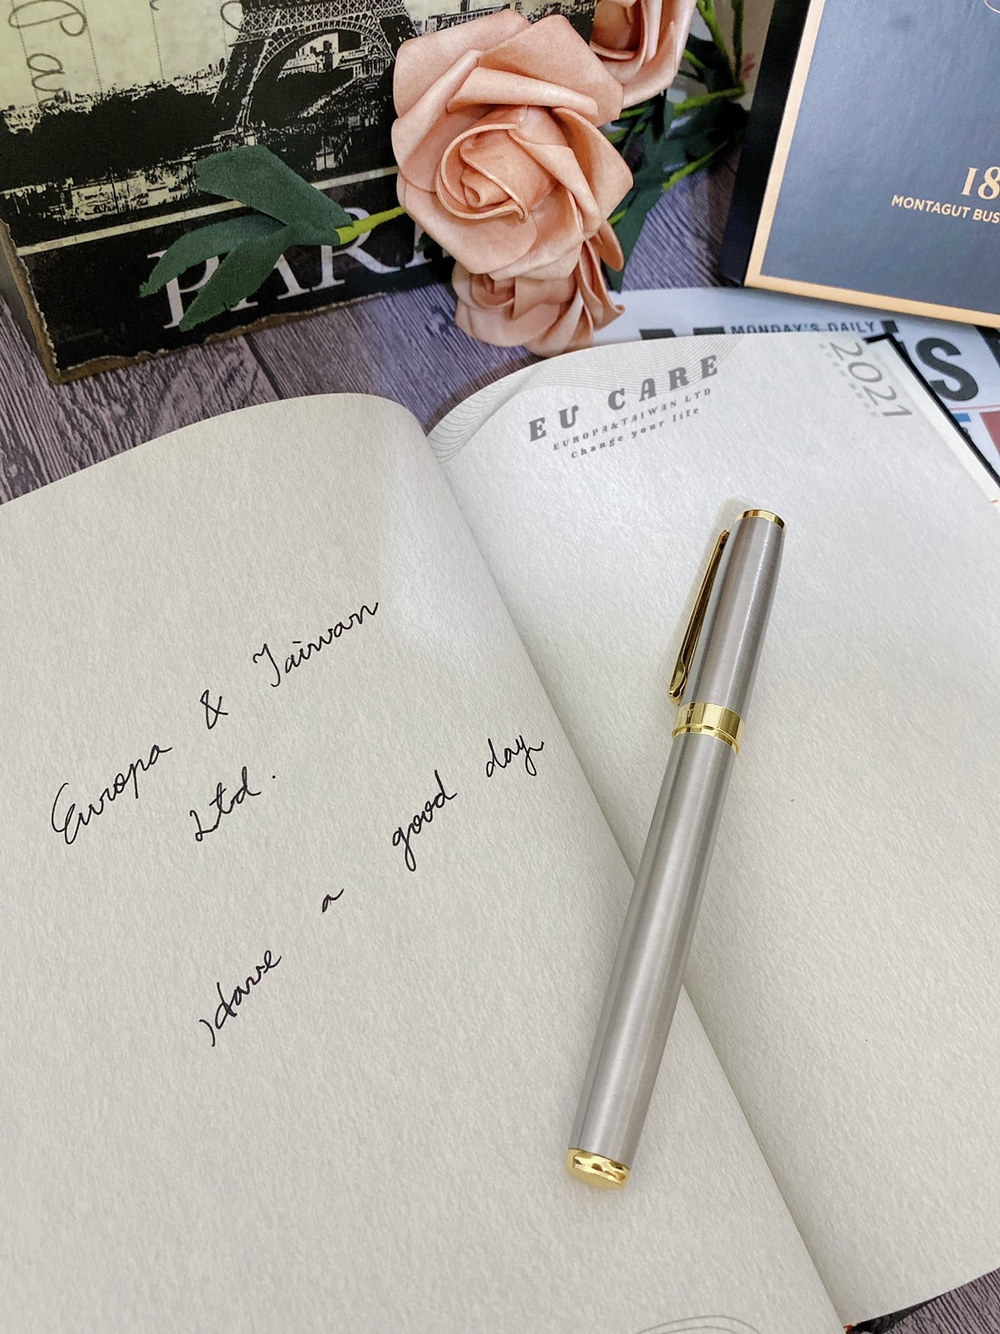 PARI
18
MONTAGUT BUS
MONDAY'S DAILY
IS
2021
EU CARE
EUROPA&TAIWAN LTD
Change your life
Europa & Taiwan
Ltd.
Have a good day